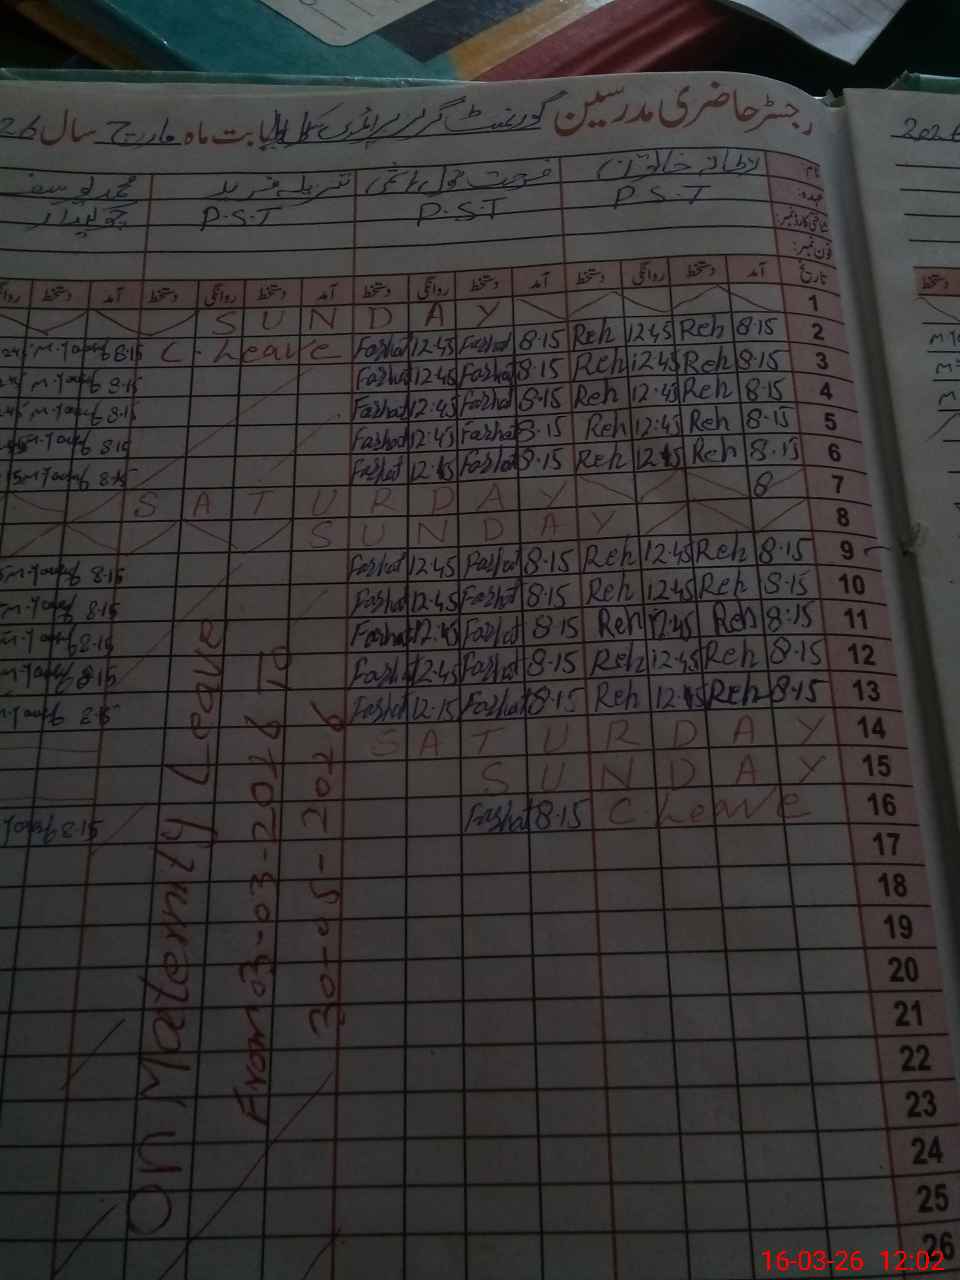 رجسٹر حاضری مدرسین گورنمنٹ گرلز پرائمری سکول بابت ماہ مارچ سال 26
2026
نام
عہدہ: P.S.T P.S.T P.S.T چوکیدار
شناختی کارڈ نمبر:
فون نمبر:
تاریخ آمد دستخط روانگی دستخط آمد دستخط روانگی دستخط آمد دستخط روانگی دستخط آمد دستخط روانگی
1 SUNDAY
2 8.15 Reh 12.45 Reh 8.15 Farhat 12.45 Farhat C. Leave 8.15 M.Yousuf
3 8.15 Reh 12.45 Reh 8.15 Farhat 12.45 Farhat 8.15 M.Yousuf
4 8.15 Reh 12.45 Reh 8.15 Farhat 12.45 Farhat 8.15 M.Yousuf
5 8.15 Reh 12.45 Reh 8.15 Farhat 12.45 Farhat 8.15 M.Yousuf
6 8.15 Reh 12.15 Reh 8.15 Farhat 12.15 Farhat 8.15 M.Yousuf
7 8 SATURDAY
8 SUNDAY
9 8.15 Reh 12.45 Reh 8.15 Farhat 12.45 Farhat 8.15 M.Yousuf
10 8.15 Reh 12.45 Reh 8.15 Farhat 12.45 Farhat 8.15 M.Yousuf
11 8.15 Reh 12.45 Reh 8.15 Farhat 12.45 Farhat 8.15 M.Yousuf
12 8.15 Reh 12.45 Reh 8.15 Farhat 12.45 Farhat 8.15 M.Yousuf
13 8.15 Reh 12.15 Reh 8.15 Farhat 12.15 Farhat 8.15 M.Yousuf
14 SATURDAY
15 SUNDAY
16 C. Leave 8.15 Farhat 8.15 Yousuf
17
18
19
20
21
22
23
24
25
26
On Maternity Leave
From 03-03-2026 To
30-05-2026
16-03-26 12:02